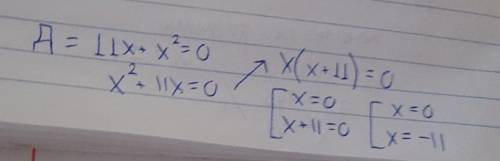 Д = 11x + x² = 0
x² + 11x = 0 ↗ x(x+11) = 0
[x = 0 [x = 0
x+11 = 0 x = -11